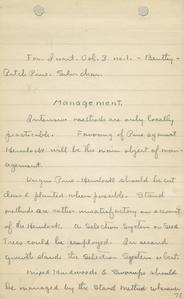 For. Quart. Vol. 3. no. 1. - Bentley -
Pitch Pine.
Management.
Intensive methods are only locally
practicable. Favoring of Pine against
Hemlock will be the main object of man-
agement.
Virgin Pine-Hemlock should be cut
clear & planted when possible. Stand
methods are rather unsatisfactory on account
of the Hemlock. A Selection System or Seed
Trees could be employed. In second
growth stands the Selection System is best.
Mixed Hardwoods & Swamps should
be managed by the Stand Method wherever